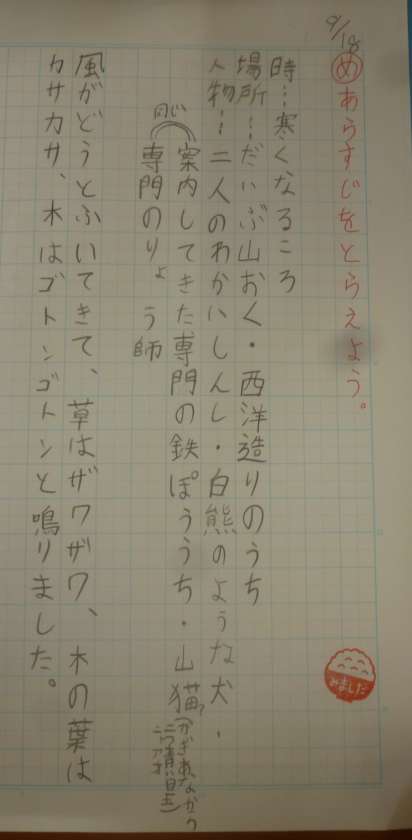 9/18
めあらすじをとらえよう。
時…寒くなるころ
場所…だいぶ山おく・西洋造りのうち
人物…二人のわかいしんし・白熊のような犬・
案内してきた専門の鉄ぽううち・山猫
同じ
専門のりょう師
風がどうとふいてきて、草はザワザワ、木の葉は
カサカサ、木はゴトンゴトンと鳴りました。
みました